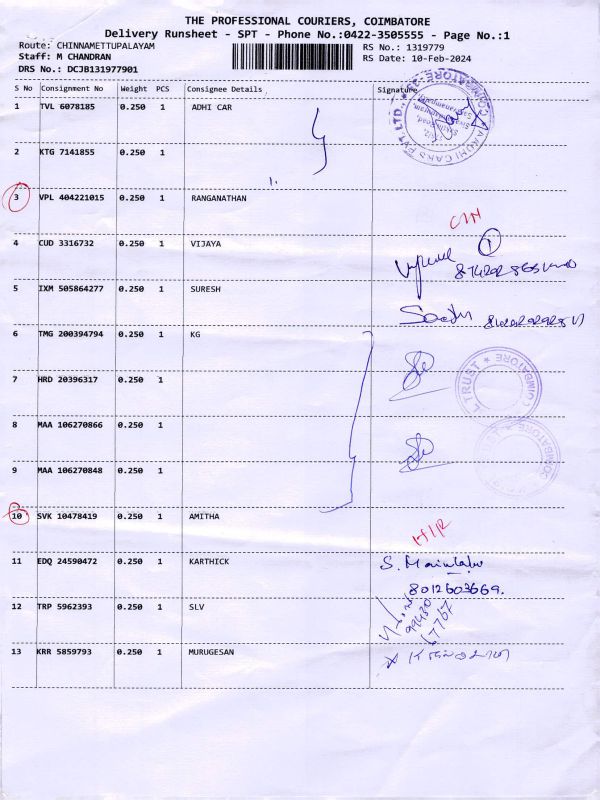 THE PROFESSIONAL COURIERS, COIMBATORE
Delivery Runsheet - SPT - Phone No.:0422-3505555 - Page No.:1
Route: CHINNAMETTUPALAYAM RS No.: 1319779
Staff: M CHANDRAN RS Date: 10-Feb-2024
DRS No.: DCJB131977901
S No Consignment No Weight PCS Consignee Details Signature
1 TVL 6078185 0.250 1 ADHI CAR
2 KTG 7141855 0.250 1
3 VPL 404221015 0.250 1 RANGANATHAN
4 CUD 3316732 0.250 1 VIJAYA
1
5 IXM 505864277 0.250 1 SURESH
6 TMG 200394794 0.250 1 KG
7 HRD 20396317 0.250 1
TRUST ★ COIMBATORE
8 MAA 106270866 0.250 1
9 MAA 106270848 0.250 1
10 SVK 10478419 0.250 1 AMITHA
11 EDQ 24590472 0.250 1 KARTHICK
8012603669.
12 TRP 5962393 0.250 1 SLV
99430
67767
13 KRR 5859793 0.250 1 MURUGESAN